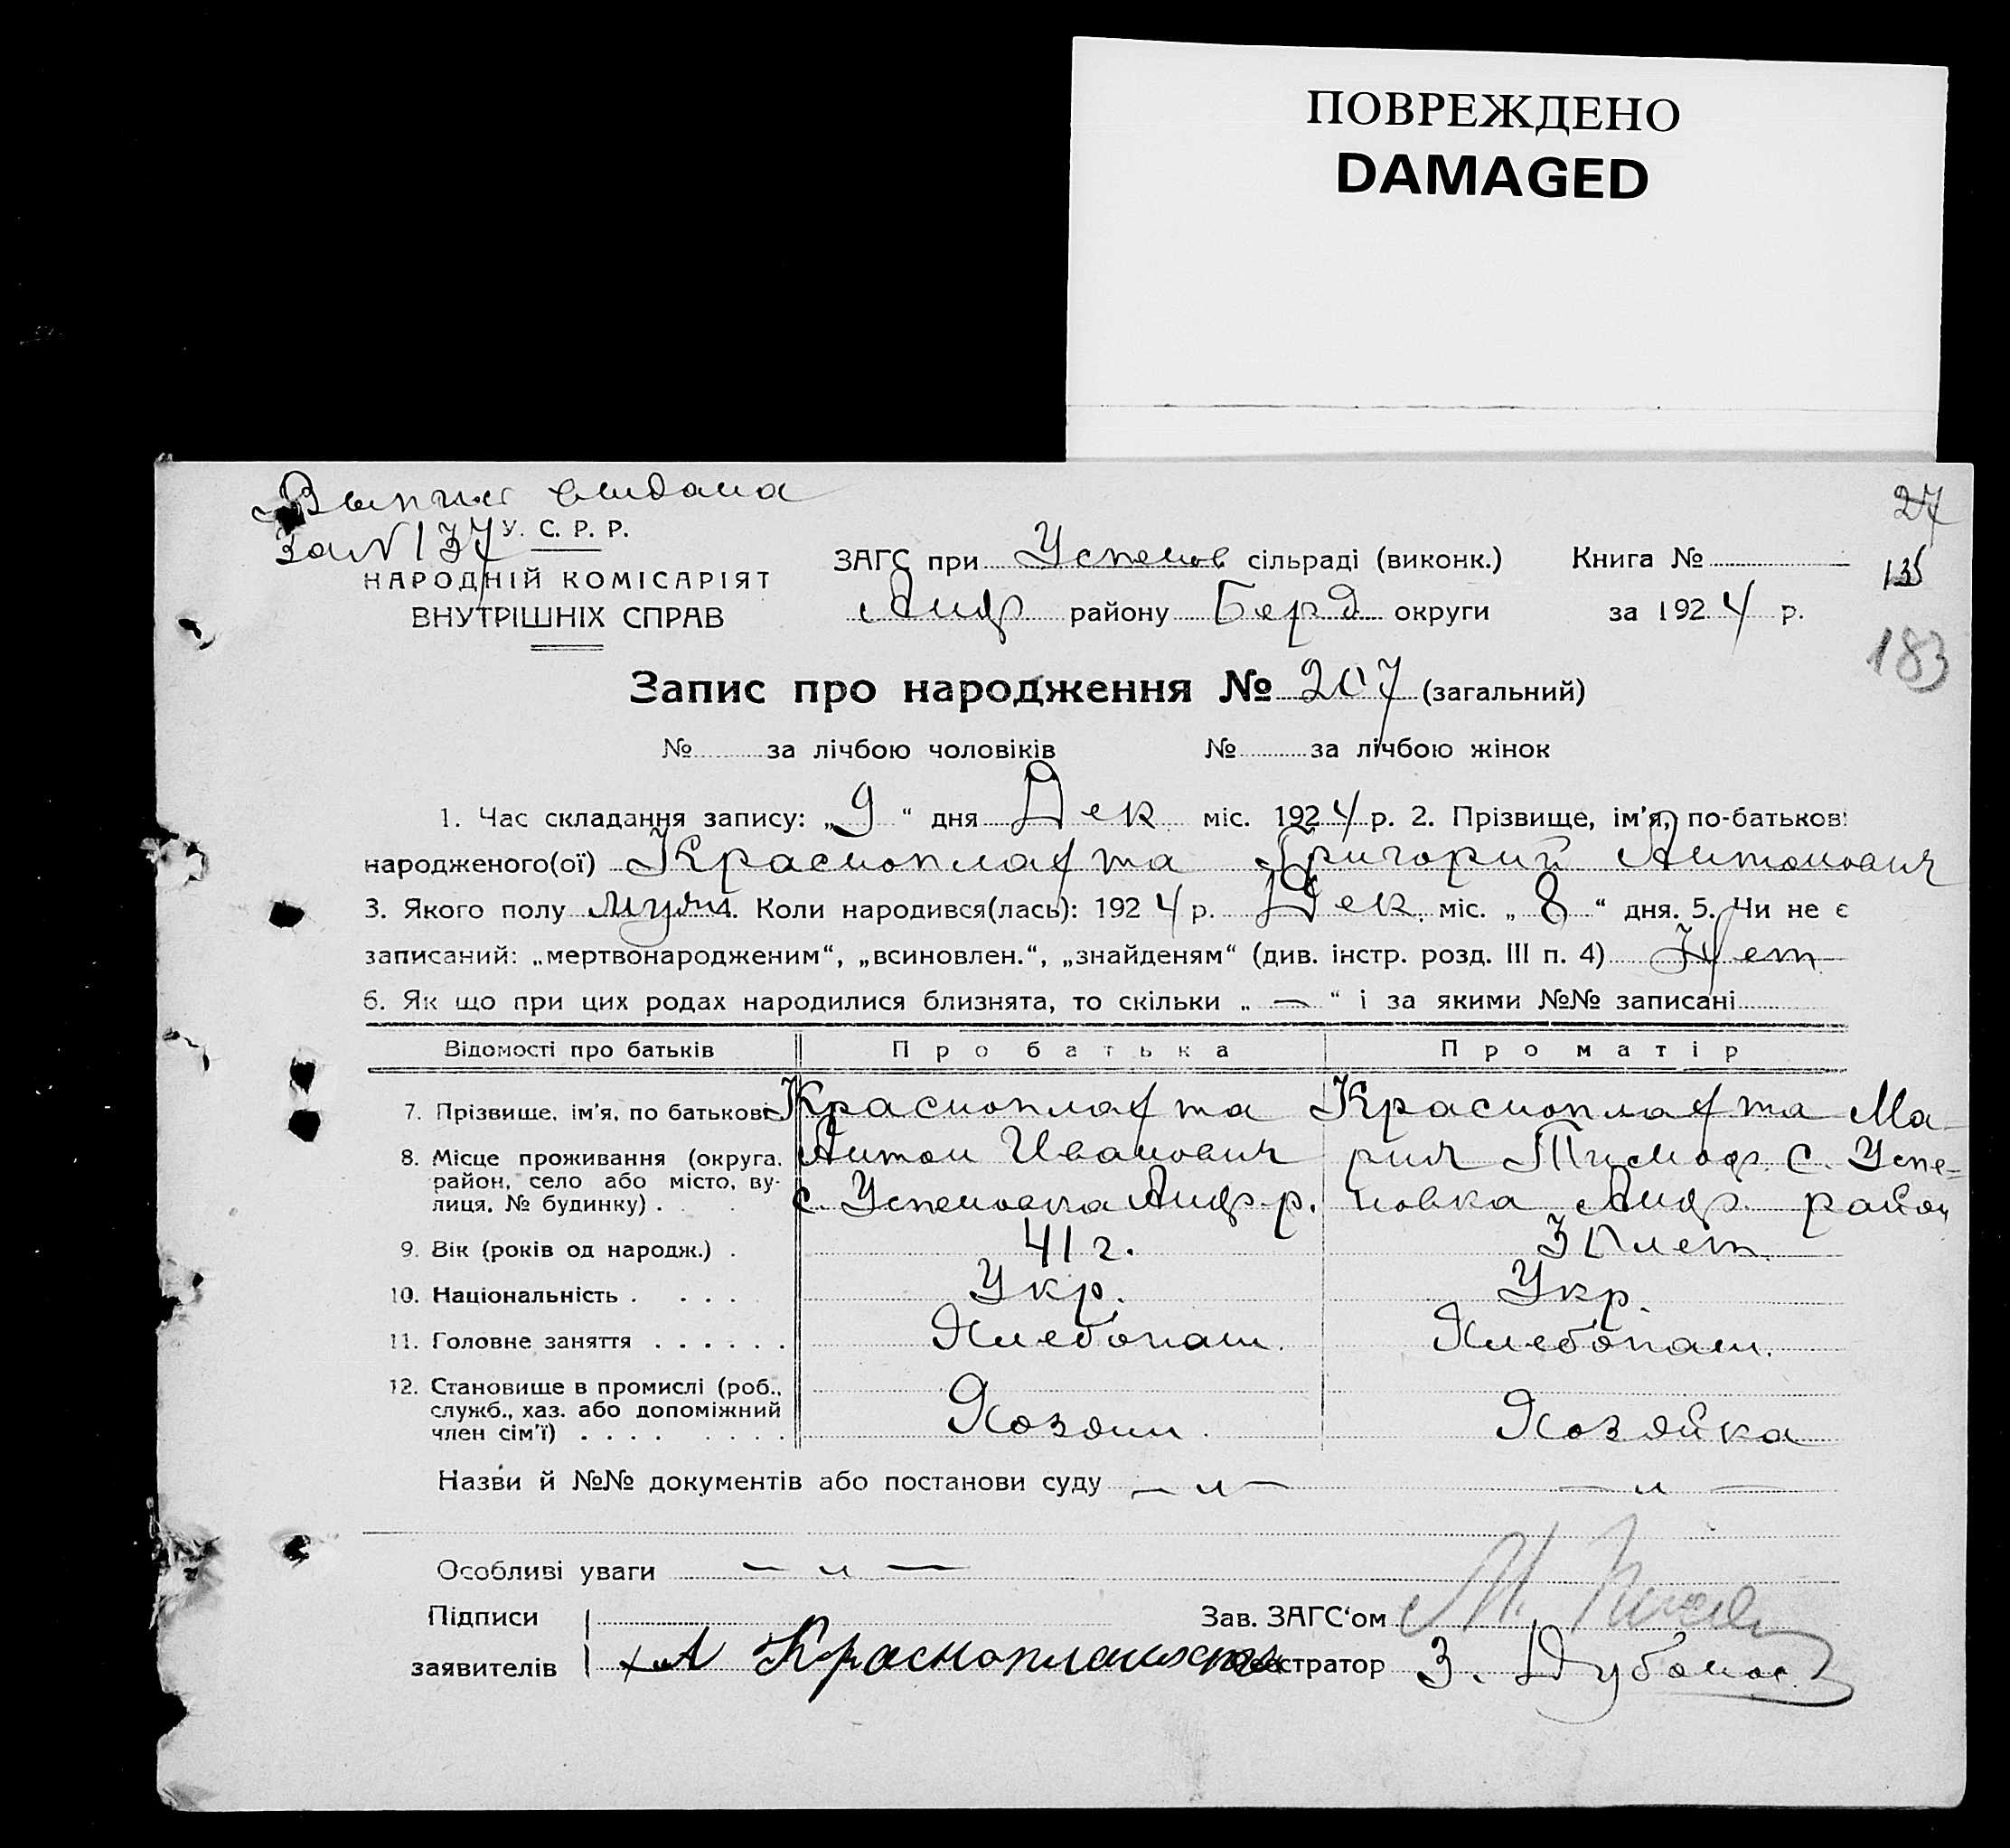 ПОВРЕЖДЕНО
DAMAGED
27
135
183
Выпись видана
за N 137
У. С. Р. Р.
НАРОДНІЙ КОМІСАРІЯТ
ВНУТРІШНІХ СПРАВ
ЗАГС при Успенов сільраді (виконк.) Книга №
Андр району Берд округи за 1924 р.
Запис про народження № 207 (загальний)
№ за лічбою чоловіків № за лічбою жінок
1. Час складання запису: „9“ дня Дек міс. 1924 р. 2. Прізвище, ім'я, по-батькові
народженого(ої) Красноплахта Григорий Антонович
3. Якого полу муж. 4. Коли народився(лась): 1924 р. Дек. міс. „8“ дня. 5. Чи не є
записаний: „мертвонародженим“, „всиновлен.“, „знайденям“ (див. інстр. розд. III п. 4) Нет
6. Як що при цих родах народилися близнята, то скільки „ — “ і за якими №№ записані
Відомості про батьків Про батька Про матір
7. Прізвище, ім'я, по батькові Красноплахта Красноплахта Ма-
8. Місце проживання (округа, Антон Иванович рия Тимоф. с. Успе-
район, село або місто, ву-
лиця, № будинку) . с. Успеновка Андр р. новка Андр. район
9. Вік (років од народж.) . 41 г. лет.
10. Національність . . . . Укр. Укр.
11. Головне заняття . . . . . . Хлебопаш. Хлебопаш.
12. Становище в промислі (роб.,
служб., хаз. або допоміжний Хозяин. Хозяйка
член сім'ї) . . . . . . . .
Назви й №№ документів або постанови суду — „ — — „ —
Особливі уваги — „ —
Підписи Зав. ЗАГС'ом М.
заявителів А Красноплахта Реєстратор З. Дубонос